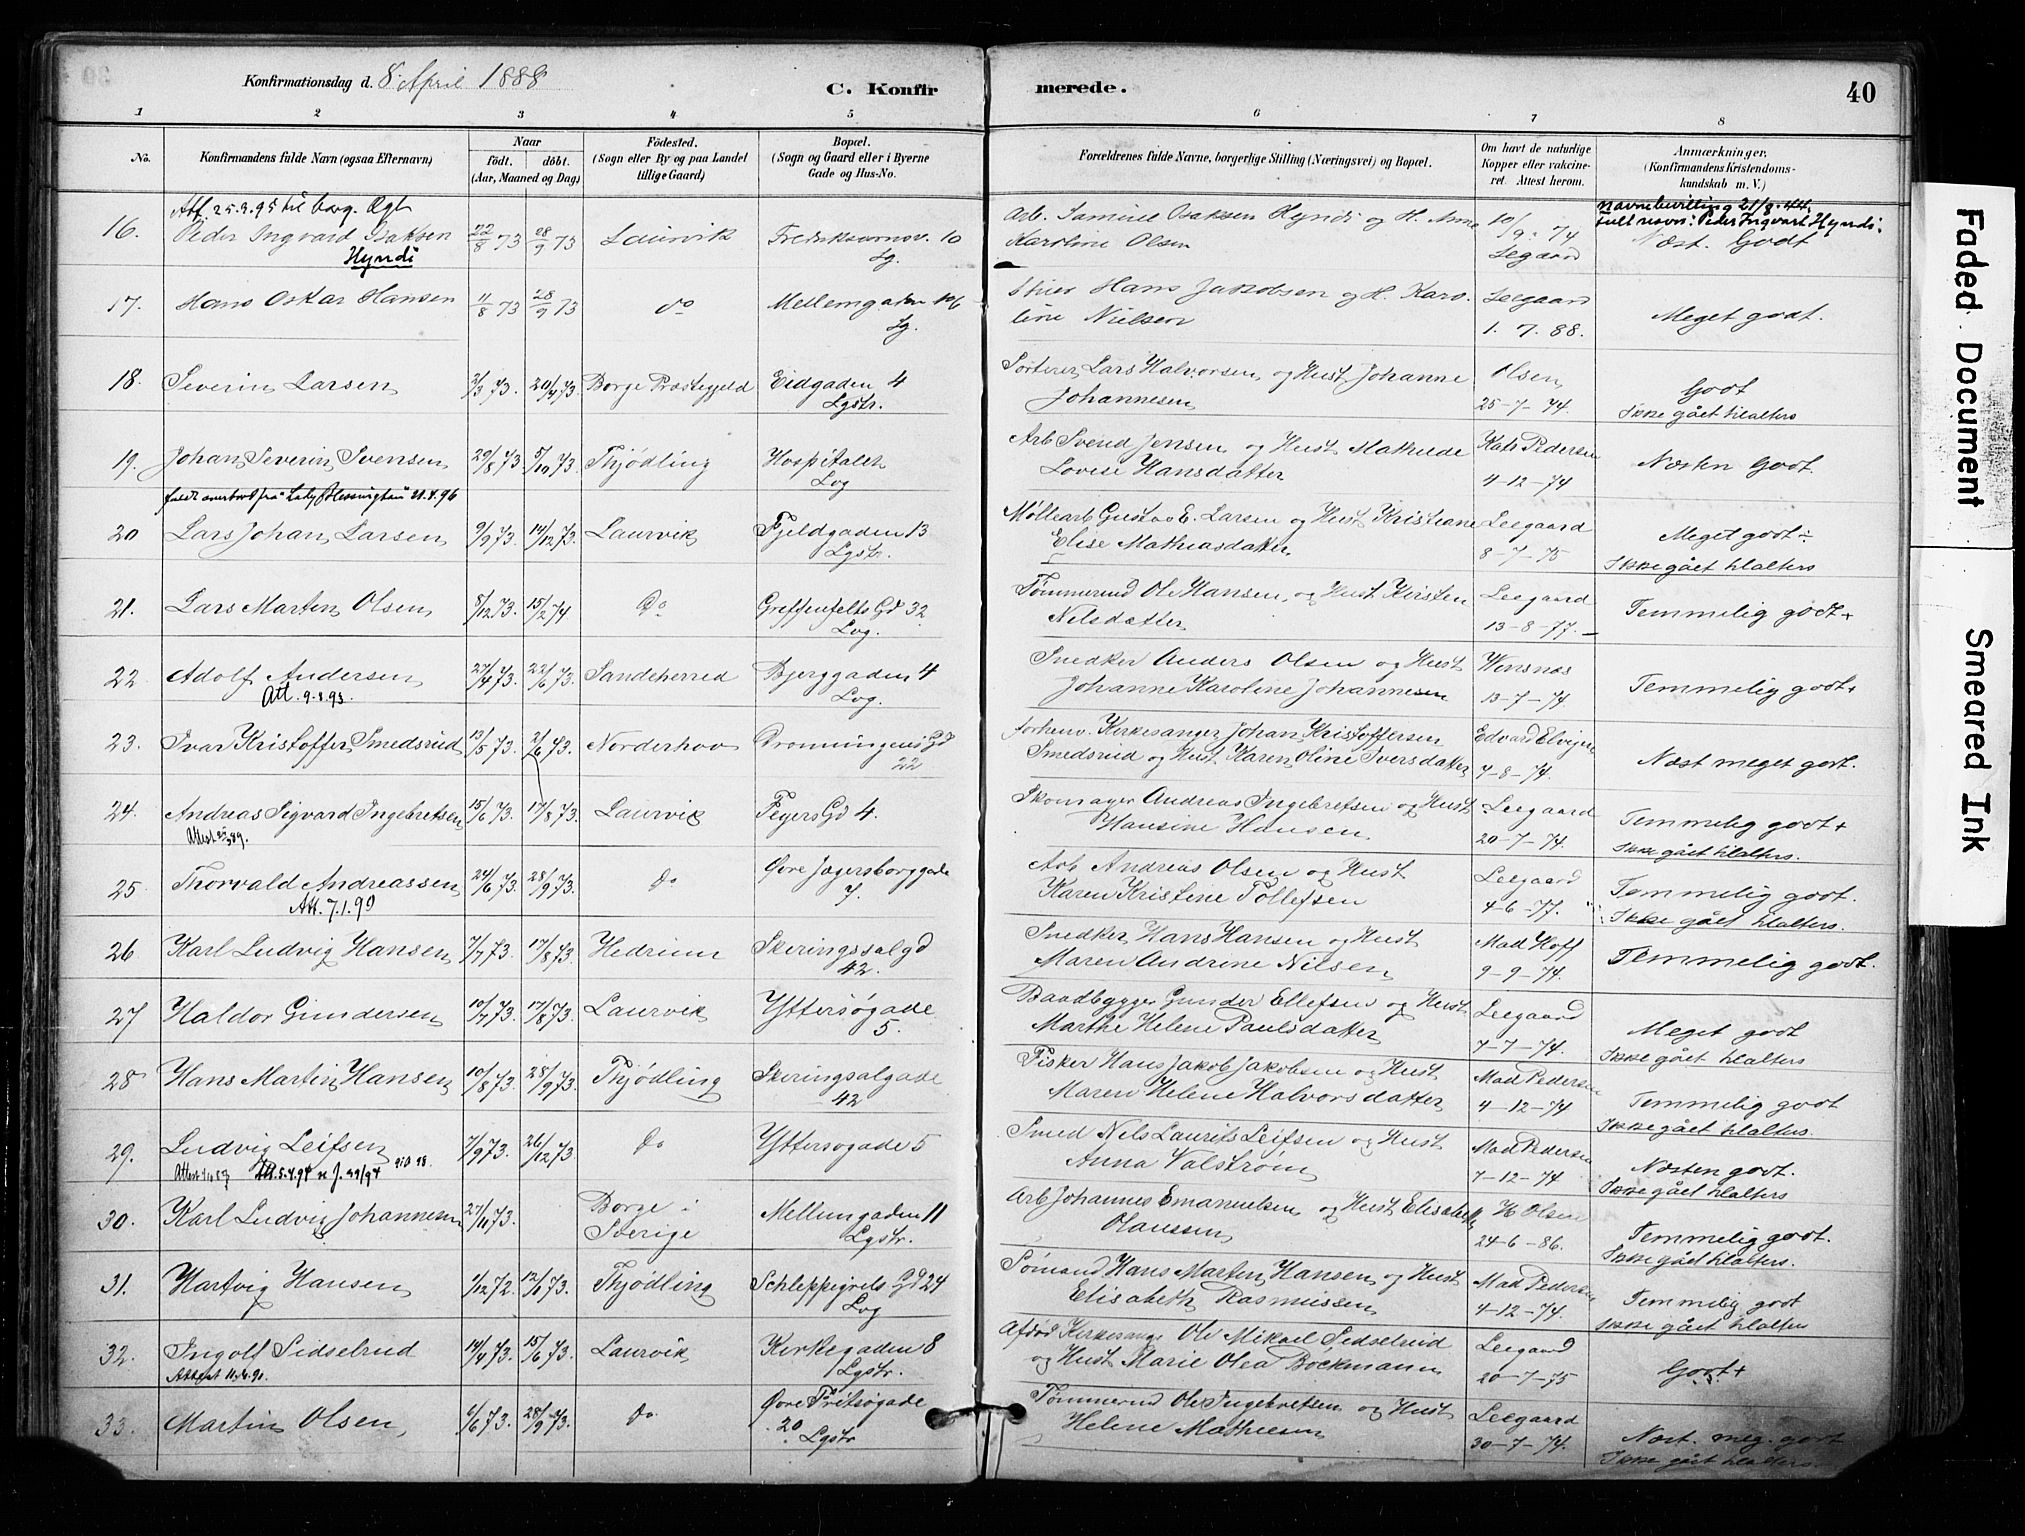 Konfirmationsdag d. 8 April 1888
C. Konfirmerede.
40
1 2 3 4 5 6 7 8
No.
Konfirmandens fulde Navn (ogsaa Efternavn)
Naar
födt. döbt.
(Aar, Maaned og Dag)
Födested.
(Sogn eller By og paa Landet
tillige Gaard)
Bopæl.
(Sogn og Gaard eller i Byerne
Gade og Hus-No.
Forældrenes fulde Navne, borgerlige Stilling (Næringsvei) og Bopæl.
Om havt de naturlige
Kopper eller vakcine-
ret. Attest herom.
Anmærkninger,
(Konfirmandens Kristendoms-
kundskab m. V.)
Att. 25.3.95 til borg. Ægt.
Navnebevilling 21/8.44.
Fullt navn: Peder Ingvart Hyndi.
16. Peder Ingvard Isaksen 22/8 73 28/9 73 Laurvik Fredriksvernsv. 10 Arb. Samuel Isaksen Hyndi og H. Anne 10/9. 74
Hyndi Lg. Karoline Olsen Legaard Næst. Godt
17. Hans Oskar Hansen 11/8 73 28/9 73 do Mellemgaden 106 Hans Jakobsen og H. Karo- Leegaard
Lg. line Nielsen 1. 7. 88. Meget godt.
18. Severin Larsen 3/3 73. 20/4 73. Borge Præstegjeld Eidgaden 4 Sorterer Lars Halvorsen og Hust Johanne Olsen Godt
Lgstr. Johannesen 25-7-74. Ikke gået tilalters
19. Johan Severin Svensen 29/8 73. 5/10 73. Thjødling Hospitalet Arb Svend Jensen og Hust Mathilde Kath Pedersen Næsten Godt.
Log Lovise Hansdatter 4-12-74
faldt overbord fra "Lady Blessington" 21.4.96
20 Lars Johan Larsen 9/9 73. 14/12 73. Laurvik Fjeldgaden 13 Møllearb Gustav E. Larsen og Hust Kristiane Leegaard Meget godt ÷
Lgstr. Elise Mathiasdatter 8-7-75 Ikke gået tilalters
21. Lars Martin Olsen 8/12 73. 15/2 74 Do Greffenfelts Gd 32 Tømmermd Ole Hansen, og Hust Kirsten Leegaard Temmelig godt +
Log. Nilsdatter 13-8-77.
22. Adolf Andersen 27/4 73. 22/6 73. Sandeherred Bjerggaden 4 Snedker Anders Olsen og Hust Wensnæs Temmelig godt +
Att. 9.8.93 Log. Johanne Karoline Johannesen 13-7-74.
23. Ivar Kristoffer Smedsrud 13/5 73. 2/6 73. Norderhov Dronningens Gd forhenv. Kirkesanger Johan Kristoffersen Edvard Elvigen Næst meget godt.
22 Smedsrud og Hust Karen Oline Iversdatter 7-8-74.
24. Andreas Sigvard Ingebretsen 15/6 73. 17/8 73. Laurvik Feyers Gd 4. Skomager Andreas Ingebretsen og Hust Leegaard Temmelig godt +
Hansine Hansen 20-7-74. Ikke gået tilalters.
25. Thorvald Andreassen 24/6 73. 28/9 73. Do Øvre Jegersborggade Arb Andreas Olsen og Hust Leegaard Temmelig godt.
Att. 7.1.90 7. Karen Kristine Tollefsen 4-6-77. Ikke gået tilalters.
26 Karl Ludvig Hansen 7/7 73. 17/8 73. Hedrum Skiringssal gd Snedker Hans Hansen og Hust Mad Hoff Temmelig godt.
42. Maren Andrine Nilsen 9-9-74.
27 Haldor Gundersen 10/7 73. 17/8 73. Laurvik Yttersøgade Baadbygger Gunder Ellefsen og Hust Leegaard Meget godt
5. Marthe Helene Paulsdatter 7-7-74. Ikke gået tilalters
28 Hans Martin Hansen 10/8 73. 28/9 73. Thjødling Skiringsalgade Fisker Hans Jakob Jakobsen og Hust Mad Pedersen Temmelig godt
42 Maren Helene Halvorsdatter 4-12-74 Ikke gået tilalters.
29. Ludvig Leifsen 7/9 73. 26/12 73. Do Yttersøgade 5 Smed Nels Laurits Leifsen og Hust Mad Pedersen Næsten godt.
Att. 5.4.94 Anna Valstrøm 7-12-74 Ikke gået tilalters
30. Karl Ludvig Johannesen 27/11 73. Borge i Mellemgaden 11 Arb Johannes Emanuelsen og Hust Elisabeth H Olsen Temmelig godt.
Sverige Lgstr. Olaussen 24-6-86. Ikke gået tilalters.
31. Hartvig Hansen 1/12 72. 12/1 73. Thjødling Schleppegrels Gd 24 Sømand Hans Martin Hansen og Hust Mad Pedersen Temmelig godt
Log Elisabeth Rasmussen 4-12-74. Ikke gået tilalters
32. Ingolf Sidselrud 14/4 73. 15/6 73. Laurvik Kirkegaden 8 Afdød Kirkesanger Ole Mikael Sidselrud Leegaard Godt +
Attest 11.4.90. Lgstr. og Hust Marie Olea Bockmann 20-7-75
33. Martin Olsen 6/6 73. 28/9 73. Do Øvre Fritsøgade Tømmermd Ole Ingebretsen og Hust Leegaard Næst. meg. godt
20 Lgstr Helene Mathiesen 30-7-74. Ikke gået tilalters.
Faded Document
Smeared Ink